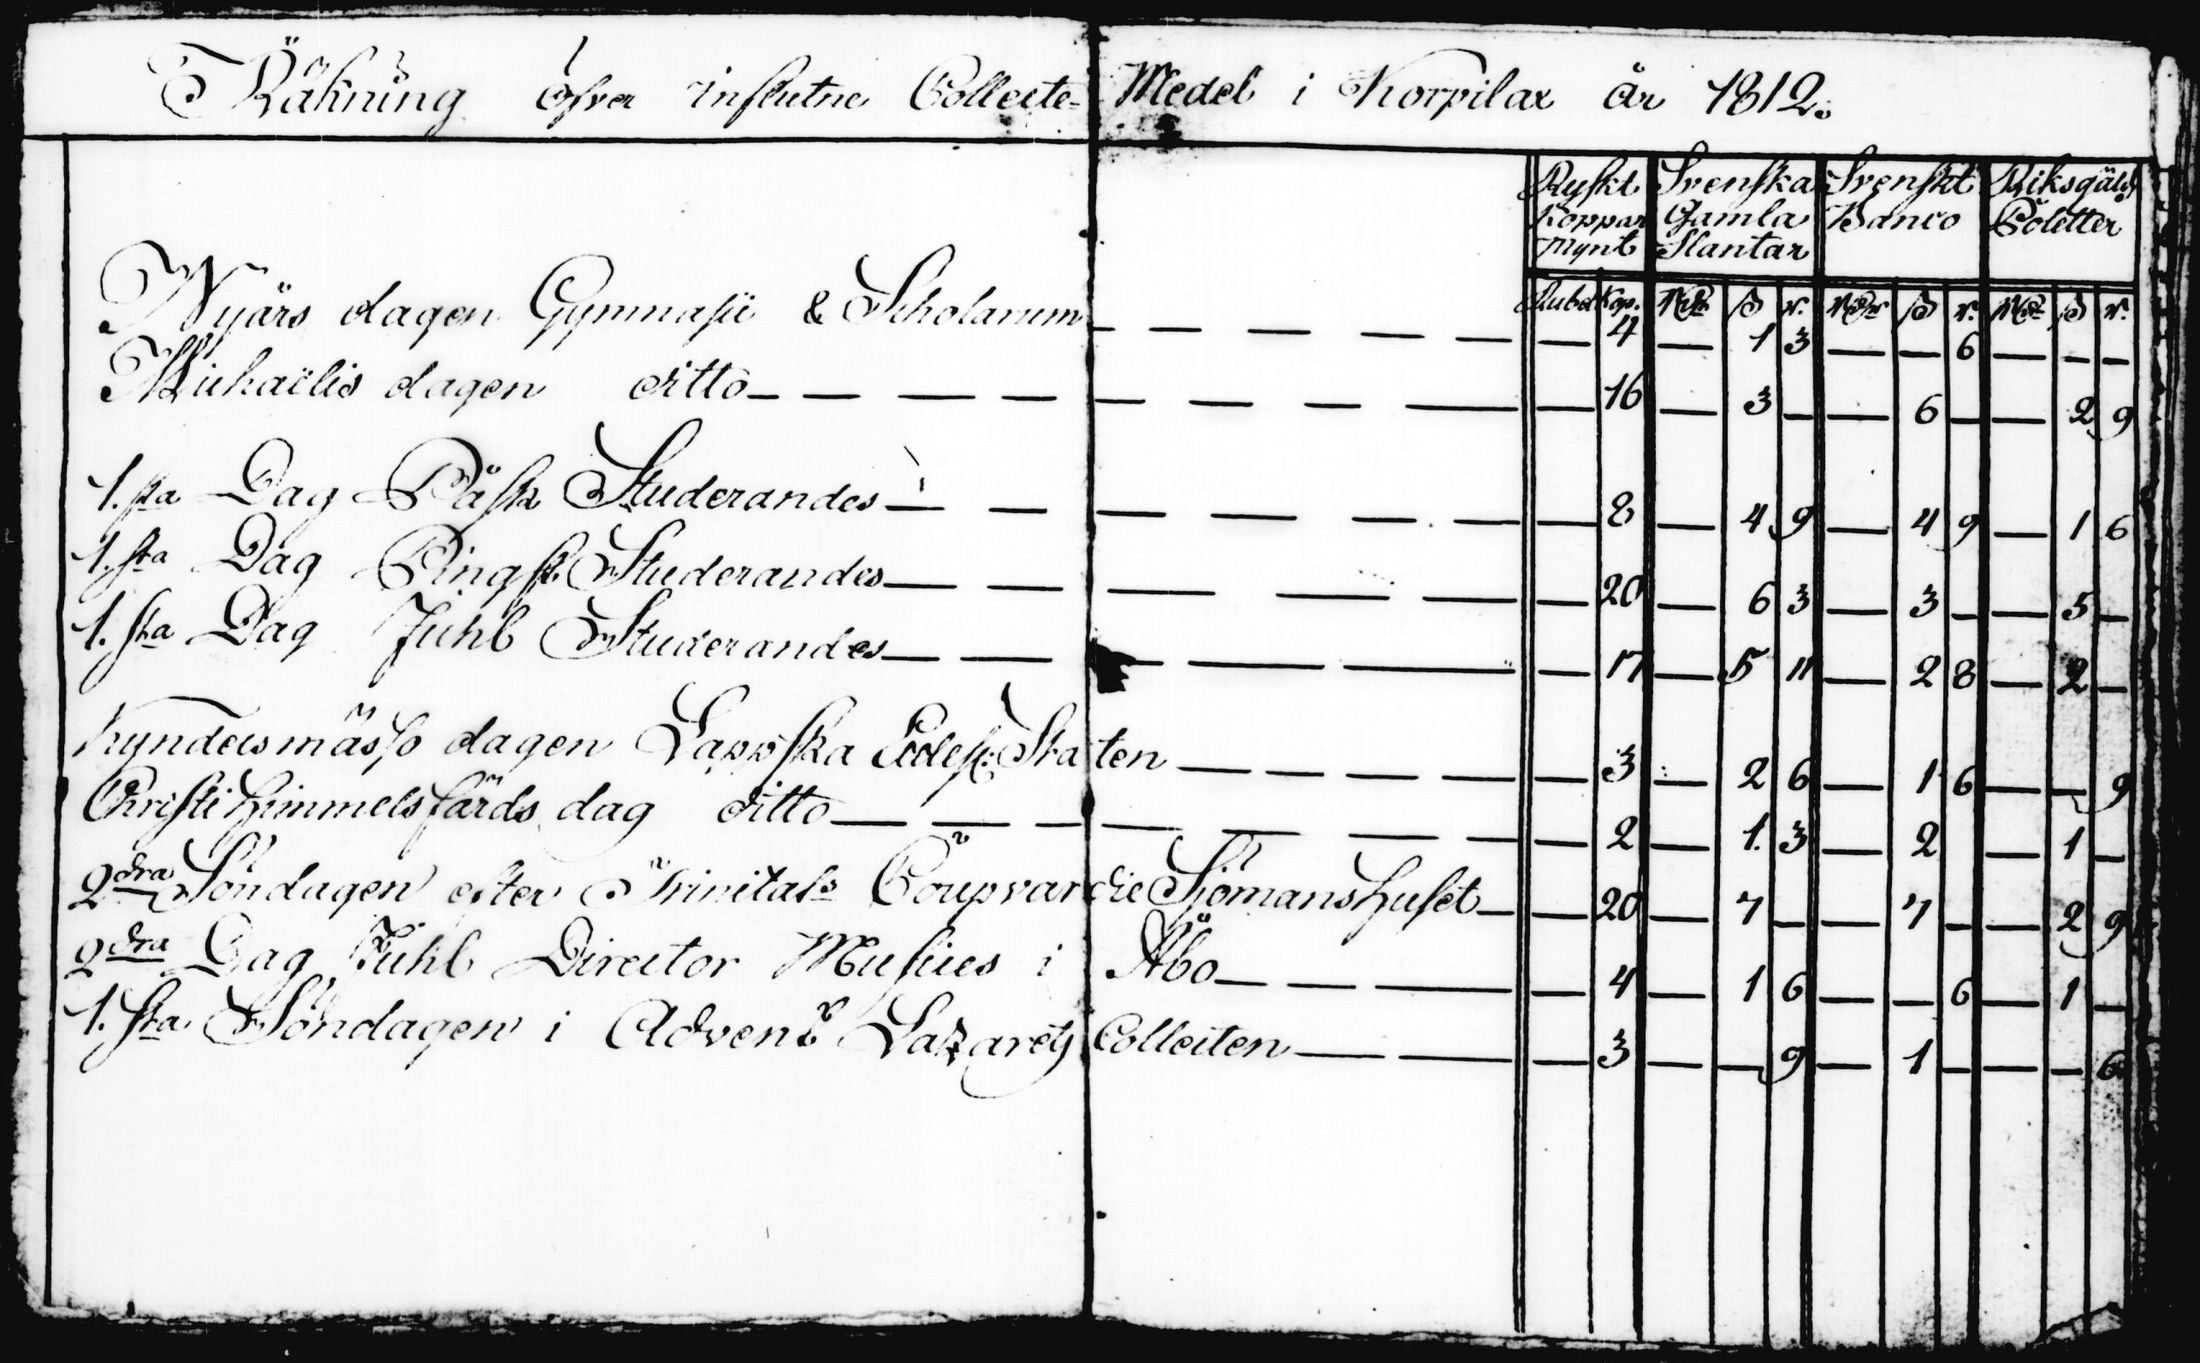 Räkning öfver influtne Collecte- Medel i Korpilax år 1812.
Ryskt Koppar Mynt Svenska Gamla Slantar Svenskt Banco Riksgäld Poletter
Rubel Kop. Rdr ß r. Rdr ß r. Rdr ß r.
Nyårs dagen Gymnasii & Scholarum — — — — — 4 — 1 3 — — 6 — — —
Michaëlis dagen ditto — — — — — 16 — 3 — — 6 — — 2 9
1.sta Dag Påsk Studerandes — — — — — 8 — 4 9 — 4 9 — 1 6
1.sta Dag Pingst Studerandes — — — — — 20 — 6 3 — 3 — — 5 —
1.sta Dag Juhl Studerandes — — — — — 17 — 5 11 — 2 8 — 2 —
Kyndelsmässo dagen Lappska Eccles: Staten — — — — — 3 — 2 6 — 1 6 — — 9
Christi himmelsfärds dag ditto — — — — — 2 — 1. 3 — 2 — 1 —
2dra Söndagen efter Trinitats Coupvardie Sjömanshuset — — 20 — 7 — — 7 — — 2 9
2dra Dag Juhl Director Musices i Åbo — — — — — 4 — 1 6 — — 6 — 1 —
1.sta Söndagen i Advent Lazaretz Collecten — — — 3 — — 9 — 1 — — — 6